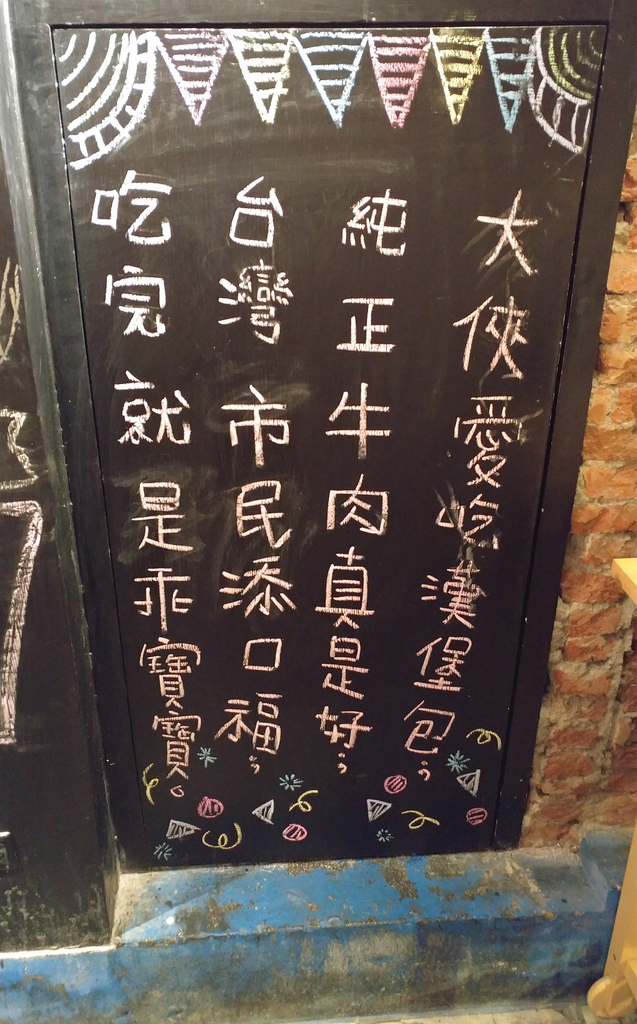 大俠愛吃漢堡包，
純正牛肉真是好，
台灣市民添口福，
吃完就是乖寶寶。